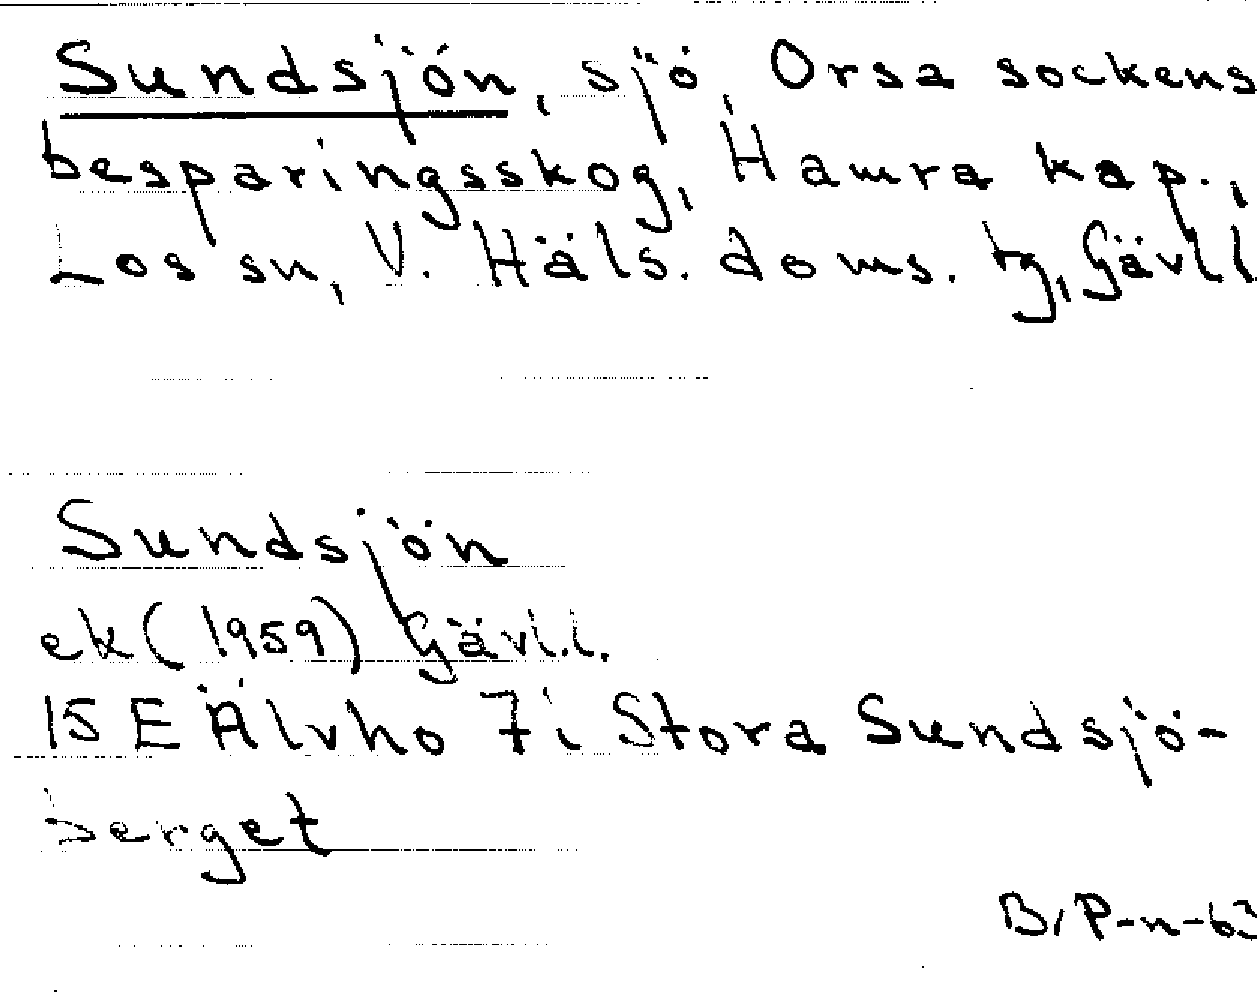 Sundsjön, sjö, Orsa sockens
besparingsskog, Hamra kap.,
Los sn, V. Häls. doms. tg, Gävl.l.
Sundsjön
ek (1959) Gävl.l.
15 E Älvho 7i Stora Sundsjö-
berget
Br P-n-63